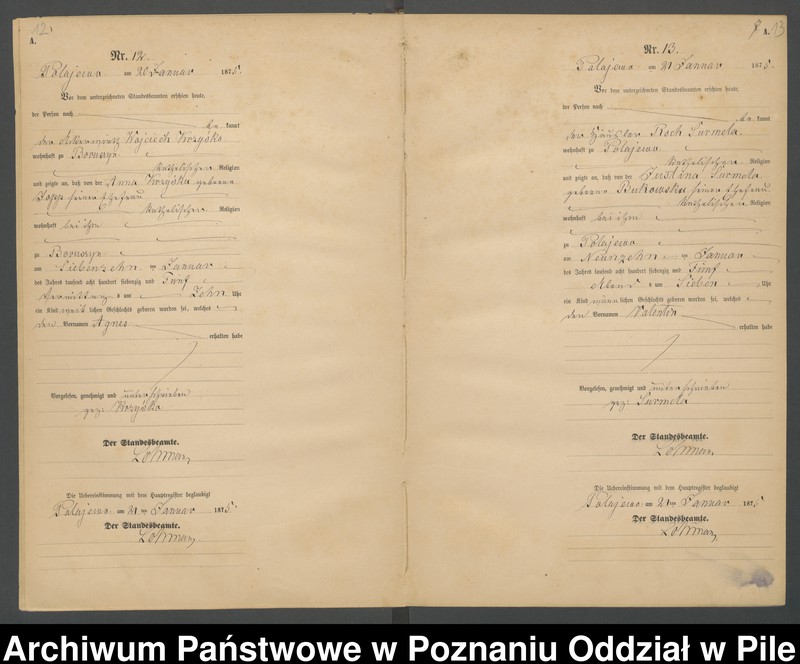 12.
A.
Nr. 12.
Polajewo am 20 Januar 1875.
Vor dem unterzeichneten Standesbeamten erschien heute,
der Person nach
be kannt
der Ackerwirth Wojciech
wohnhaft zu Boruszyn
katholischer Religion
und zeigte an, daß von der Anna geborene
seiner Ehefrau
katholischer Religion
wohnhaft bei ihm
zu Boruszyn
am Siebenzehn ten Januar
des Jahres tausend acht hundert siebenzig und Fünf
Vormittags um Zehn Uhr
ein Kind weib lichen Geschlechts geboren worden sei, welches
den Vornamen Agnes
erhalten habe
Vorgelesen, genehmigt und unterschrieben
gez:
Der Standesbeamte.
Die Uebereinstimmung mit dem Hauptregister beglaubigt
Polajewo am 21 ten Januar 1875.
Der Standesbeamte.
A. 13
Nr. 13.
Polajewo am 21 Januar 1875.
Vor dem unterzeichneten Standesbeamten erschien heute,
der Person nach
be kannt
der Häusler Roch Surmela
wohnhaft zu Polajewo
katholischer Religion
und zeigte an, daß von der Justina Surmela
geborene Bukowska seiner Ehefrau
katholischer Religion
wohnhaft bei ihm
zu Polajewo
am Neunzehn ten Januar
des Jahres tausend acht hundert siebenzig und Fünf
Abend s um Sieben Uhr
ein Kind männ lichen Geschlechts geboren worden sei, welches
den Vornamen Valentin
erhalten habe
Vorgelesen, genehmigt und unterschrieben
gez: Surmela
Der Standesbeamte.
Die Uebereinstimmung mit dem Hauptregister beglaubigt
Polajewo am 21 ten Januar 1875
Der Standesbeamte.
Archiwum Państwowe w Poznaniu Oddział w Pile